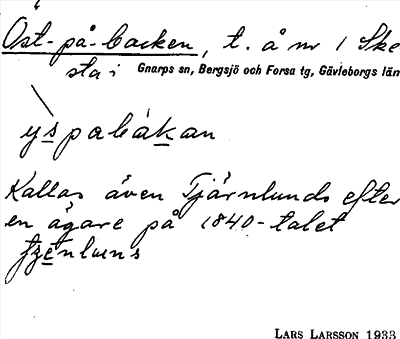 Öst-på-backen, t. å nr 1 Ske
sta i Gnarps sn, Bergsjö och Forsa tg, Gävleborgs län
yspabákan
Kallas även Tjärnlunds efter
en ägare på 1840-talet
LARS LARSSON 1933